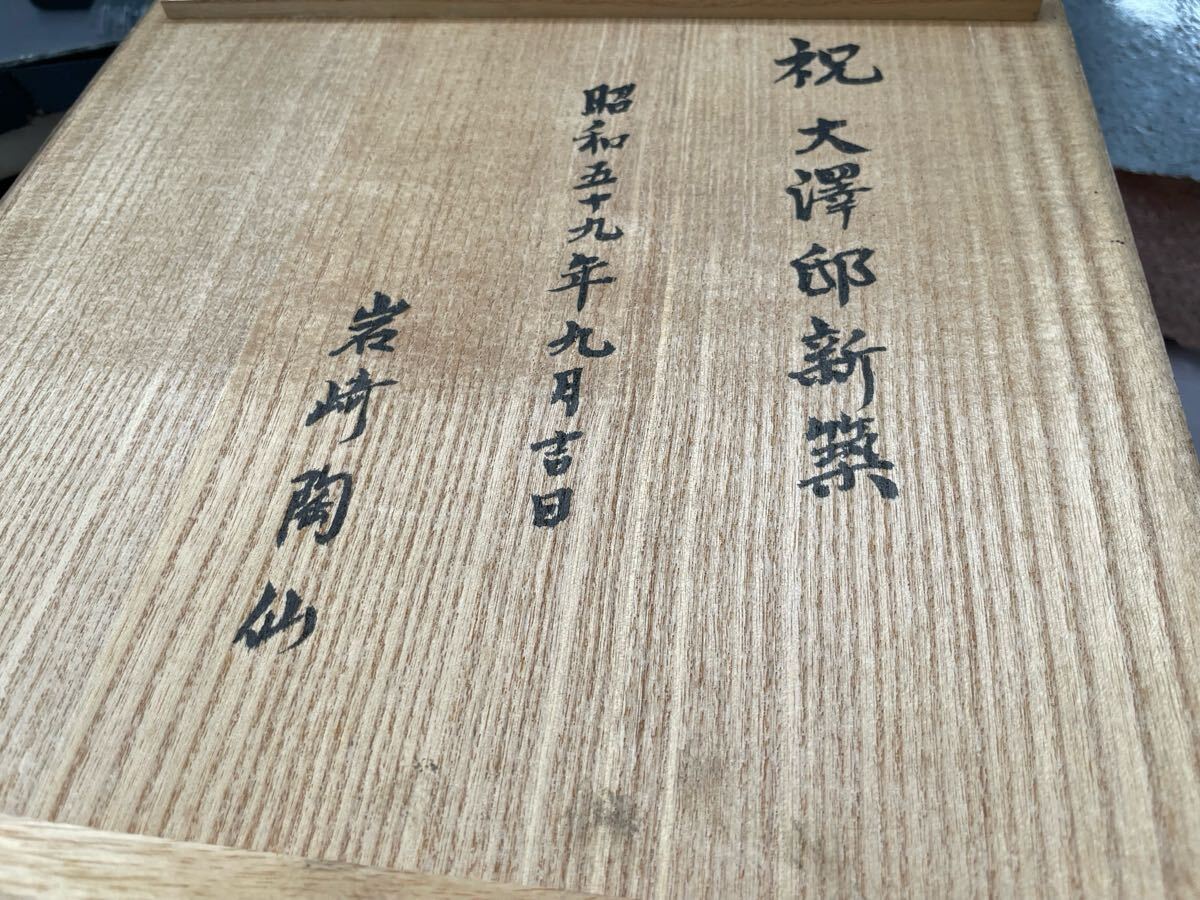 祝 大澤邸新築
昭和五十九年九月吉日
岩崎陶仙